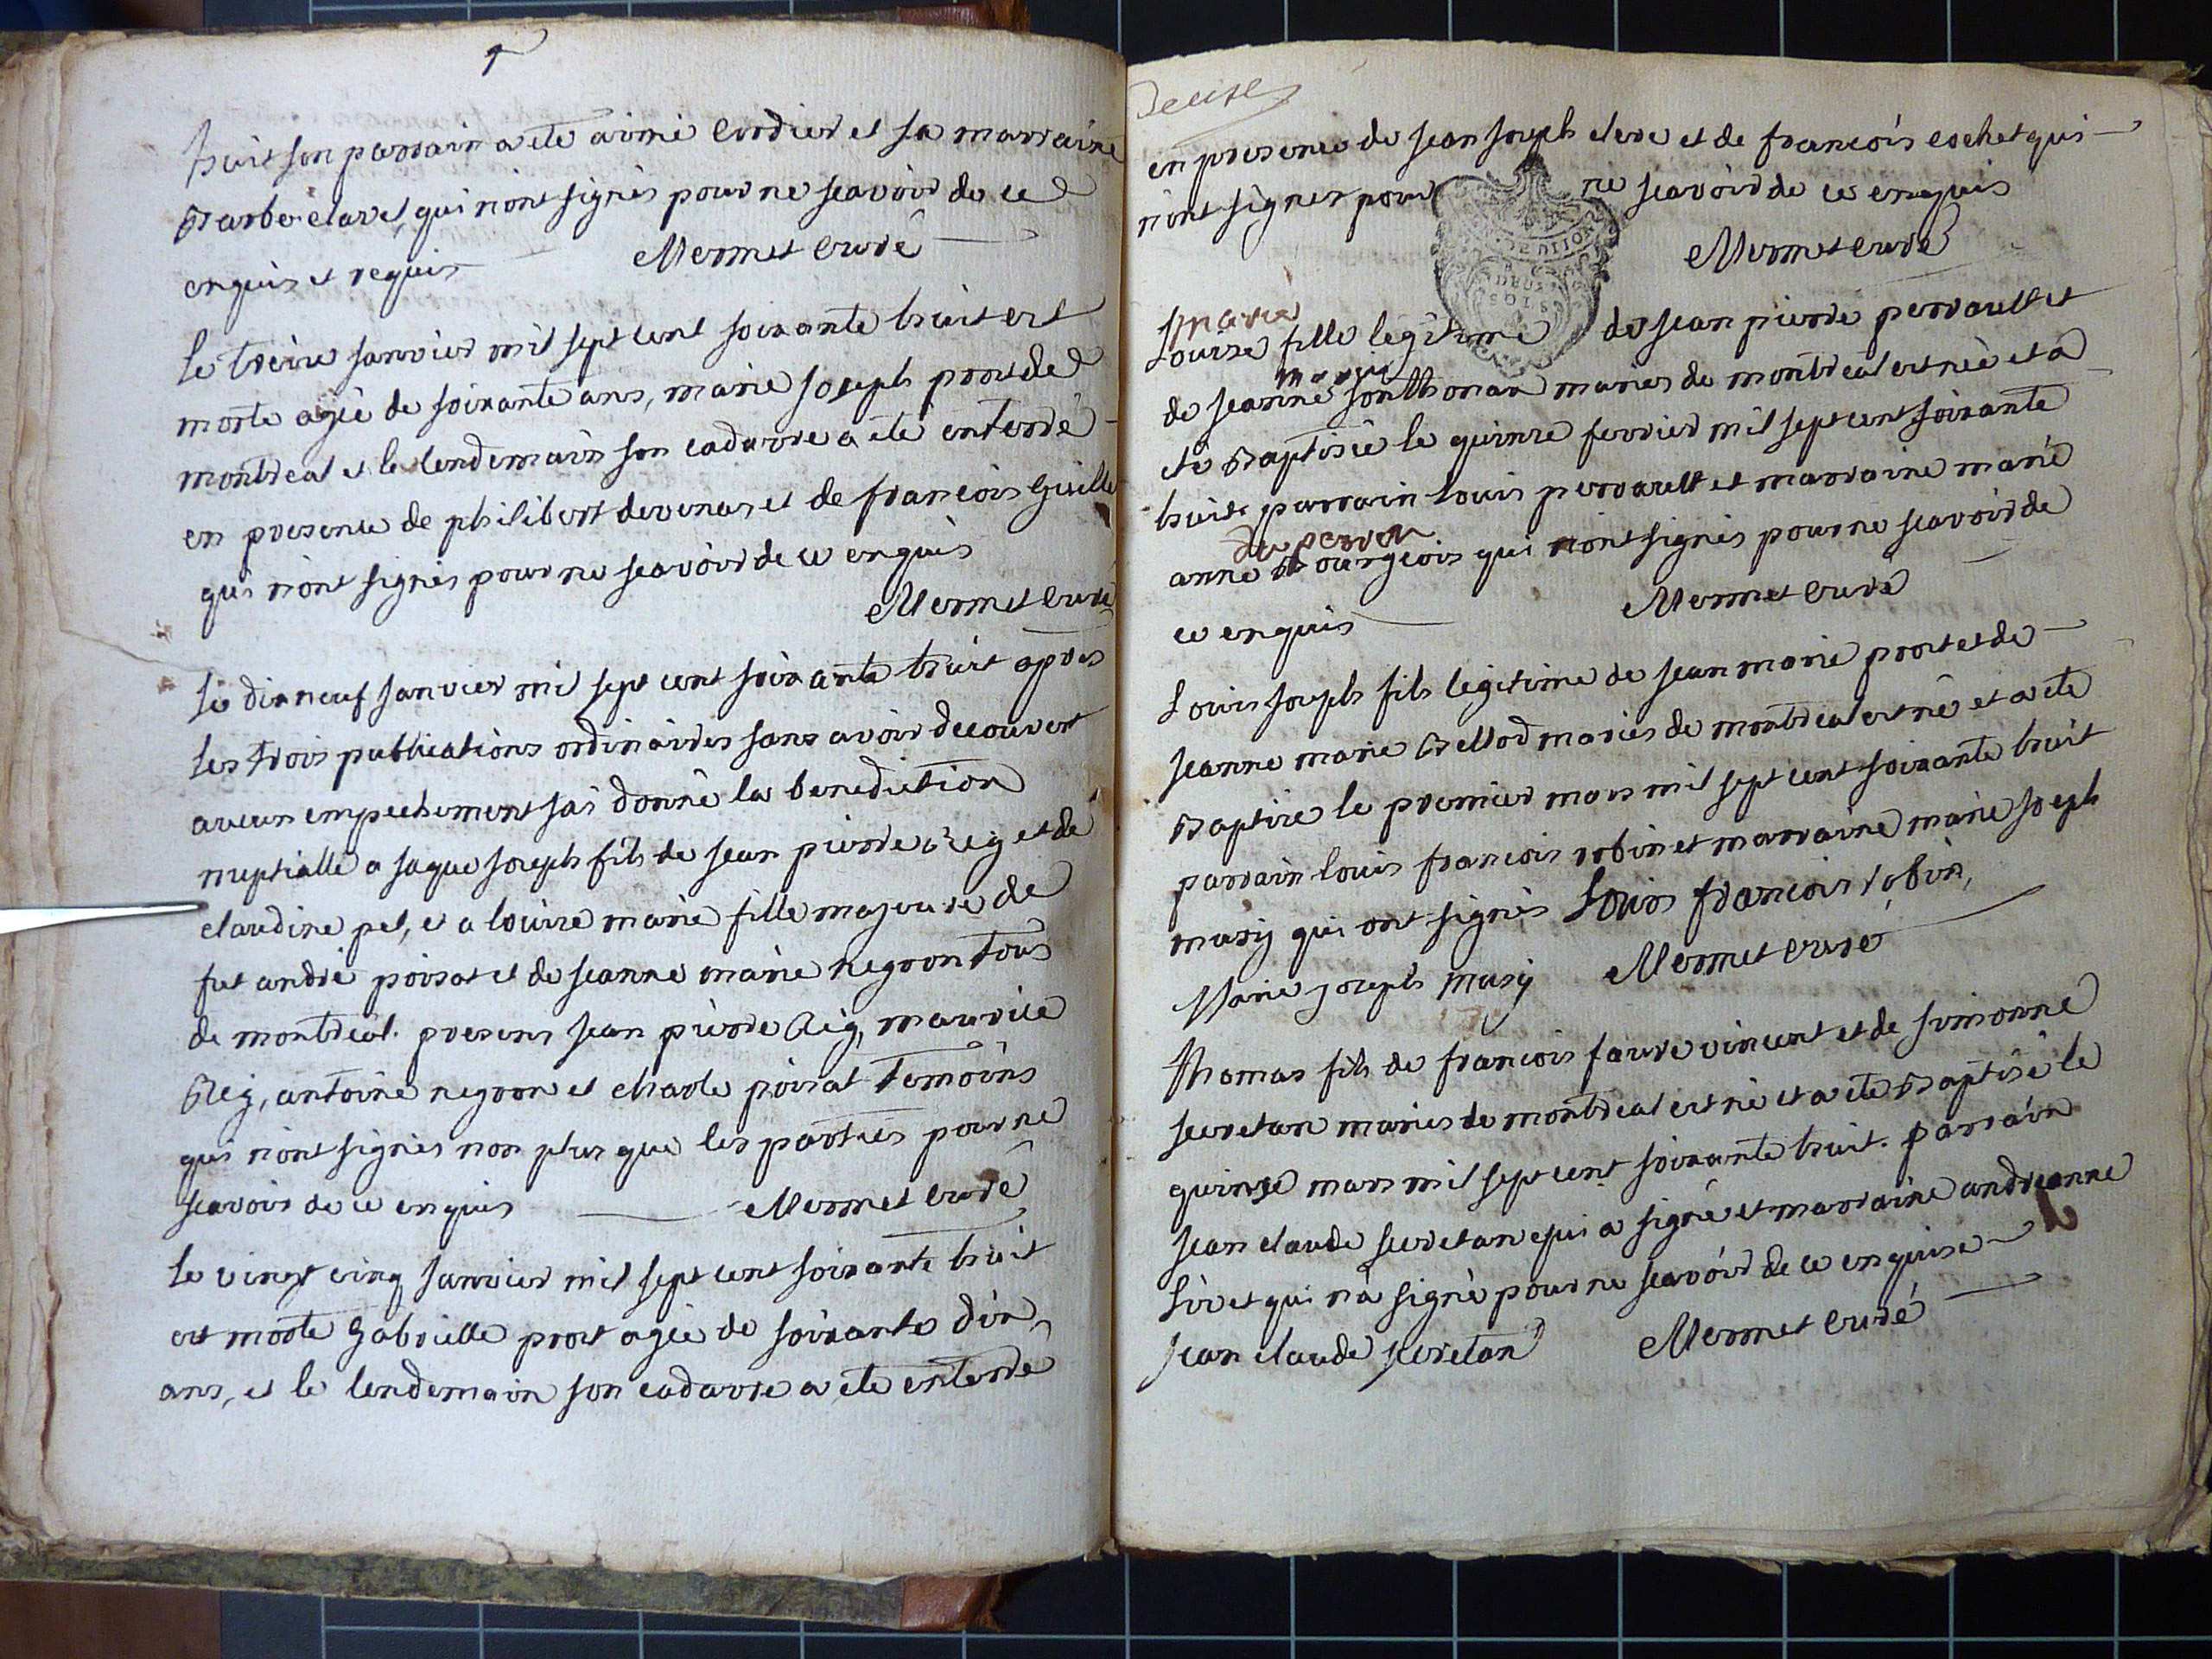 huit son parrain a ete aimé Cordier et sa marraine
Barbe claret, qui n'ont signés pour ne scavoir de ce
enquis et requis Mermet Curé
Le treize janvier mil sept cent soixante huit est
morte agée de soixante ans, marie joseph prost de
montreal et le lendemain son cadavre a eté enterré
en presence de philibert devenas et de francois
qui n'ont signés pour ne scavoir de ce enquis
Mermet Curé
Le dixneuf janvier mil sept cent soixante huit apres
les trois publications ordinaires sans avoir decouvert
aucun empechement j'ai donné la benediction
nuptialle a jaque joseph fils de jean pierre Reg et de
claudine pet, et a louise marie fille majeure de
fut andré poisat et de jeanne marie negron tous
de montreal. presens jean pierre Reg, maurice
Reg, antoine negron et charle poisat temoins
qui n'ont signés non plus que les parties pour ne
scavoir de ce enquis Mermet Curé
Le vingt cinq janvier mil sept cent soixante huit
est morte Gabrielle prost agée de soixante dix
ans, et le lendemain son cadavre a eté enterré
en presence de jean joseph clere et de francois cochet qui
n'ont signer pour ne scavoir de ce enquis
Mermet Curé
marie
Louise fille legitime de jean pierre perrault et
marie
de jeanne sonthonax mariés de montreal est née et a
eté Baptisée le quinze fevrier mil sept cent soixante
huit. parrain louis perrault et marraine marie
du perron
anne Bourgeois qui n'ont signés pour ne scavoir de
ce enquis Mermet Curé
Louis joseph fils legitime de jean marie prost et de
jeanne marie Bellod mariés de montreal est né et a ete
Baptisé le premier mars mil sept cent soixante huit
parrain louis francois robin et marraine marie joseph
musy qui ont signés Louis francois robin,
Marie joseph musy Mermet Curé
Thomas fils de francois favre vincent et de simonne
secretan mariés de montreal est né et a ete Baptisé le
quinze mars mil sept cent soixante huit. parrain
jean claude secretan qui a signé et marraine andreanne
qui n'a signé pour ne scavoir de ce enquise
jean claude secretan Mermet Curé